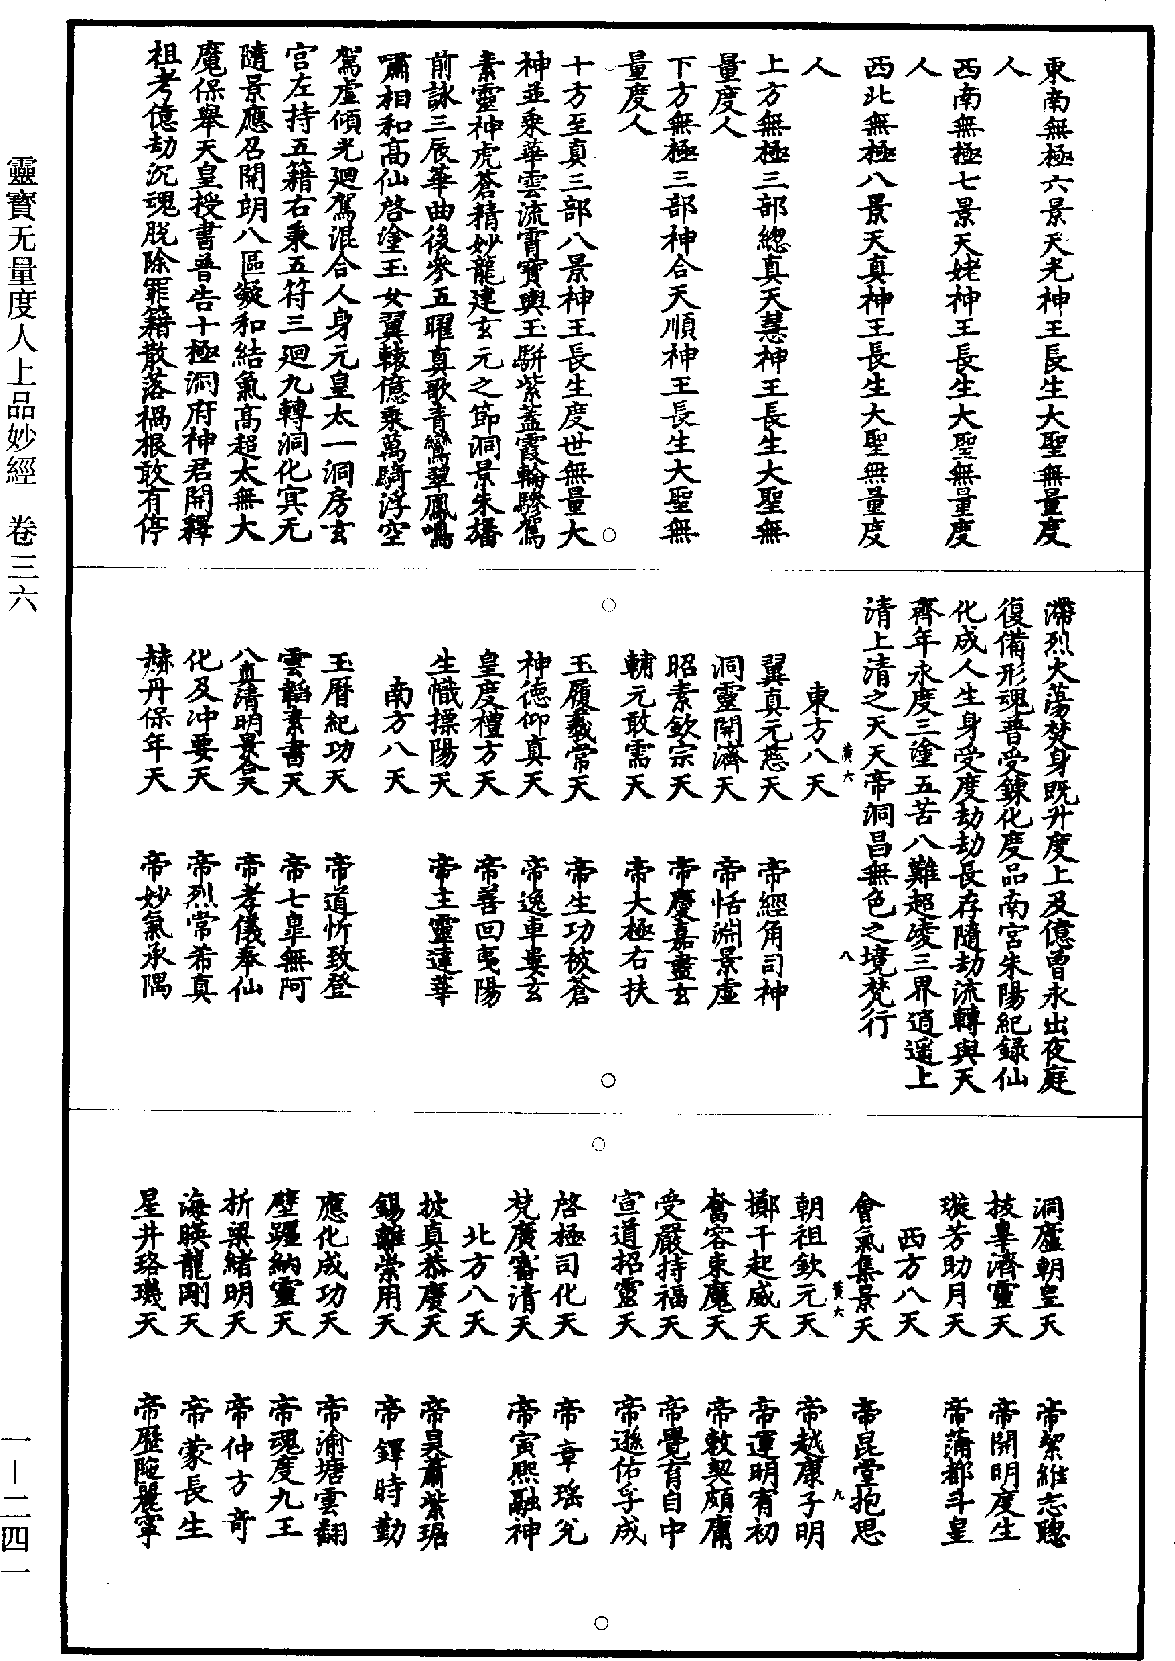 東南無極六景天光神王長生大聖無量度
人
西南無極七景天姥神王長生大聖無量度
人
西北無極八景天真神王長生大聖無量度
人
上方無極三部總真天慧神王長生大聖無
量度人
下方無極三部神合天順神王長生大聖無
量度人
十方至真三部八景神王長生度世無量大
神並乘華雲流霄寶輿玉駢紫蓋霞輪驂駕
素靈神虎蒼精妙龍建玄元之節洞景朱旛
前詠三辰華曲後參五曜真歌青鸞翠鳳鳴
嘯相和高仙啓塗玉女翼轅億乘萬騎浮空
駕虛傾光廻駕混合人身元皇太一洞房玄
宮左持五籍右秉五符三廻九轉洞化冥无
隨景應召開明八區凝和結氣高超太無大
魔保舉天皇授書普告十極洞府神君開釋
祖考億劫沉魂脫除罪籍散落禍根敢有停
滯烈火蕩焚身既升度上及億曾永出夜庭
復備形魂普受鍊化度品南宮朱陽紀錄仙
化成人生身受度劫劫長存隨劫流轉與天
齊年永度三塗五苦八難超凌三界逍遥上
清上清之天天帝洞昌無色之境梵行
黃六
八
東方八天
翼真元慈天 帝經角司神
洞靈開濟天 帝恬淵景虛
昭素欽宗天 帝慶嘉盡玄
輔元敢需天 帝大極右扶
玉履義常天 帝生功被蒼
神德仰真天 帝逸車婁玄
皇度禮方天 帝善回夷陽
生幟摽陽天 帝主靈違華
南方八天
玉曆紀功天 帝道忻致登
雲韜素書天 帝七皐無阿
八真清明景合天 帝孝儀奉仙
化及冲要天 帝烈常希真
赫丹保年天 帝妙氣承隅
洞廬朝皇天 帝絜維志聰
技臯濟靈天 帝開明度生
璇芳助月天 帝蒲都斗皇
西方八天
會氣集景天 帝昆堂抱思
黃六
九
朝祖欽元天 帝越康子明
擲干起威天 帝運明宥初
奮容束魔天 帝敕契頗庸
受嚴持福天 帝覺有自中
宣道招靈天 帝遜佑孚成
啓極司化天 帝章瑤光
梵廣審清天 帝寅熙融神
北方八天
披真恭慶天 帝昊蕭紫琚
錫難崇用天 帝鐸時勤
應化成功天 帝渝塘雲翻
壁躔納靈天 帝魂度九王
析梁緒明天 帝仲方奇
海暎龍剛天 帝蒙長生
星井珞璣天 帝歷陁麗寧
靈寶无量度人上品妙經 卷三六
一—二四一